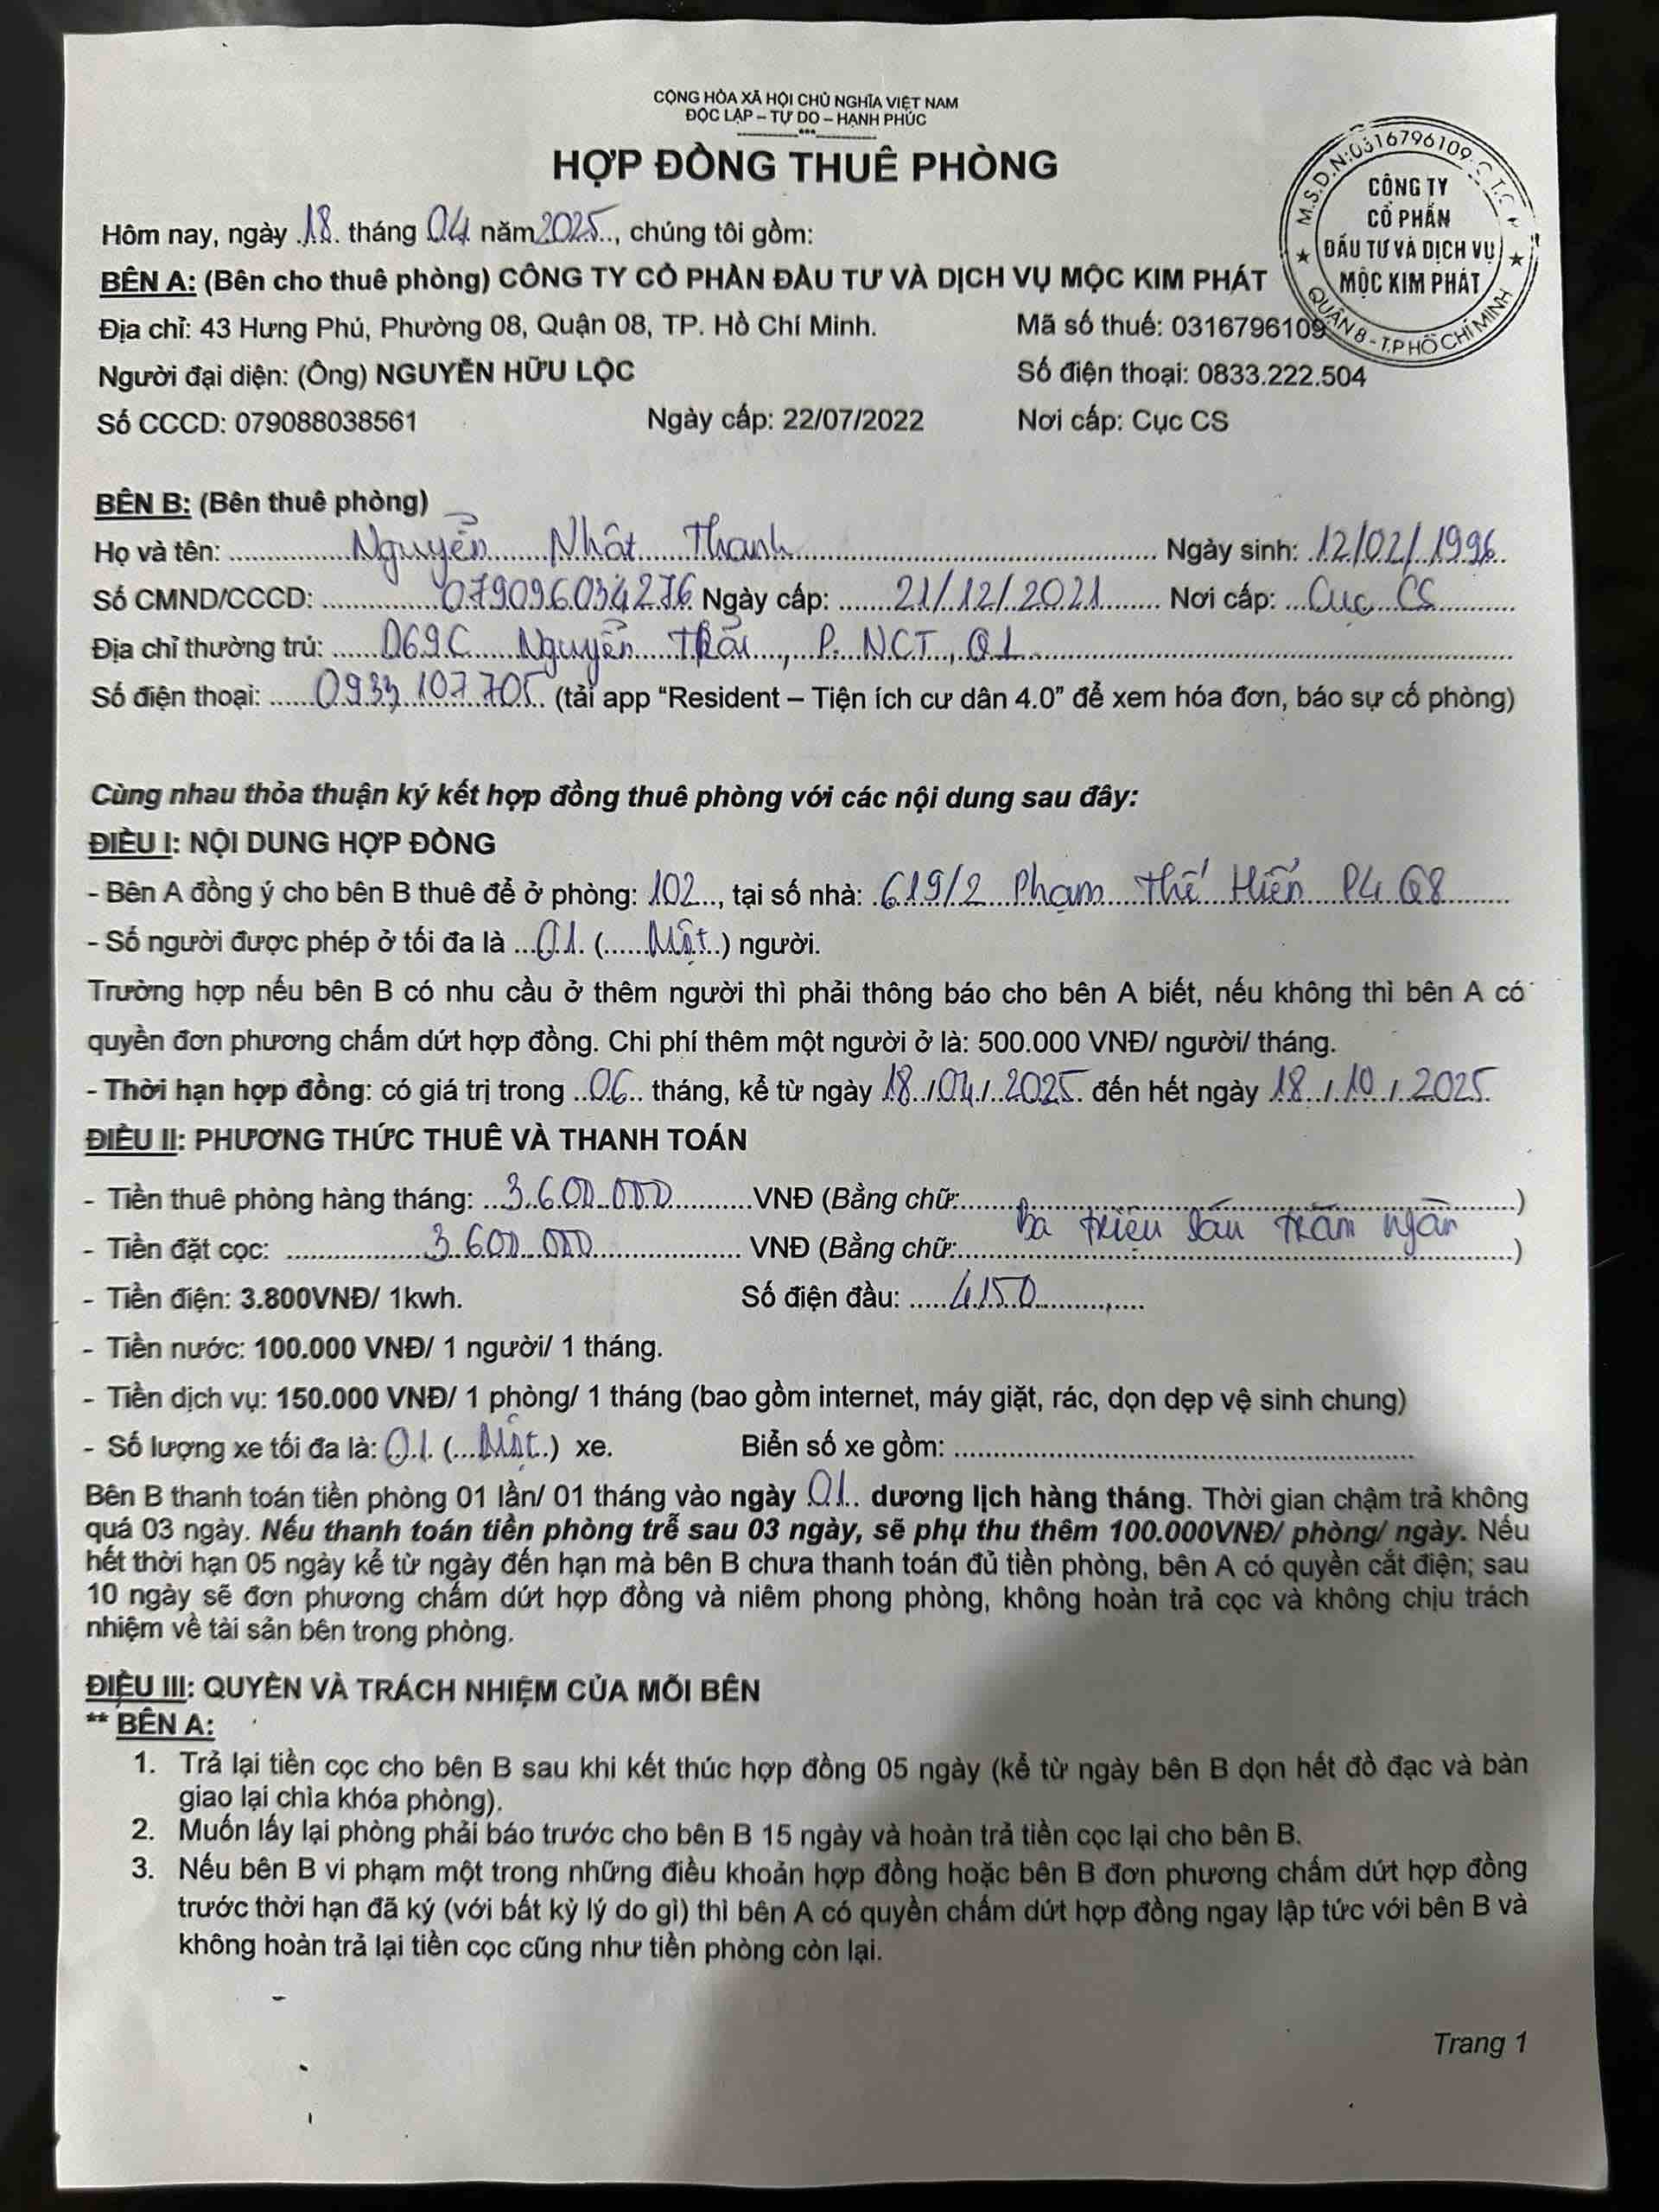 CỘNG HÒA XÃ HỘI CHỦ NGHĨA VIỆT NAM
ĐỘC LẬP – TỰ DO – HẠNH PHÚC
***
HỢP ĐỒNG THUÊ PHÒNG
M.S.D.N:0316796109
CÔNG TY
CỔ PHẦN
ĐẦU TƯ VÀ DỊCH VỤ
MỘC KIM PHÁT
QUẬN 8 - T.P HỒ CHÍ MINH
Hôm nay, ngày 18 tháng 04 năm 2025, chúng tôi gồm:
BÊN A: (Bên cho thuê phòng) CÔNG TY CỔ PHẦN ĐẦU TƯ VÀ DỊCH VỤ MỘC KIM PHÁT
Địa chỉ: 43 Hưng Phú, Phường 08, Quận 08, TP. Hồ Chí Minh. Mã số thuế: 0316796109
Người đại diện: (Ông) NGUYỄN HỮU LỘC Số điện thoại: 0833.222.504
Số CCCD: 079088038561 Ngày cấp: 22/07/2022 Nơi cấp: Cục CS
BÊN B: (Bên thuê phòng)
Họ và tên: Nguyễn Nhật Thanh Ngày sinh: 12/02/1996
Số CMND/CCCD: 079096034276 Ngày cấp: 21/12/2021 Nơi cấp: Cục CS
Địa chỉ thường trú: D69C Nguyễn Trãi, P. NCT, Q1
Số điện thoại: 0933 107 705 (tải app “Resident – Tiện ích cư dân 4.0” để xem hóa đơn, báo sự cố phòng)
Cùng nhau thỏa thuận ký kết hợp đồng thuê phòng với các nội dung sau đây:
ĐIỀU I: NỘI DUNG HỢP ĐỒNG
- Bên A đồng ý cho bên B thuê để ở phòng: 102, tại số nhà: 619/2 Phạm Thế Hiển P4 Q8
- Số người được phép ở tối đa là 01 (Một) người.
Trường hợp nếu bên B có nhu cầu ở thêm người thì phải thông báo cho bên A biết, nếu không thì bên A có
quyền đơn phương chấm dứt hợp đồng. Chi phí thêm một người ở là: 500.000 VNĐ/ người/ tháng.
- Thời hạn hợp đồng: có giá trị trong 06 tháng, kể từ ngày 18/04/2025 đến hết ngày 18/10/2025
ĐIỀU II: PHƯƠNG THỨC THUÊ VÀ THANH TOÁN
- Tiền thuê phòng hàng tháng: 3.600.000 VNĐ (Bằng chữ: )
Ba triệu sáu trăm ngàn
- Tiền đặt cọc: 3.600.000 VNĐ (Bằng chữ: )
- Tiền điện: 3.800VNĐ/ 1kwh. Số điện đầu: 4150
- Tiền nước: 100.000 VNĐ/ 1 người/ 1 tháng.
- Tiền dịch vụ: 150.000 VNĐ/ 1 phòng/ 1 tháng (bao gồm internet, máy giặt, rác, dọn dẹp vệ sinh chung)
- Số lượng xe tối đa là: 01 (Một) xe. Biển số xe gồm:
Bên B thanh toán tiền phòng 01 lần/ 01 tháng vào ngày 01 dương lịch hàng tháng. Thời gian chậm trả không
quá 03 ngày. Nếu thanh toán tiền phòng trễ sau 03 ngày, sẽ phụ thu thêm 100.000VNĐ/ phòng/ ngày. Nếu
hết thời hạn 05 ngày kể từ ngày đến hạn mà bên B chưa thanh toán đủ tiền phòng, bên A có quyền cắt điện; sau
10 ngày sẽ đơn phương chấm dứt hợp đồng và niêm phong phòng, không hoàn trả cọc và không chịu trách
nhiệm về tài sản bên trong phòng.
ĐIỀU III: QUYỀN VÀ TRÁCH NHIỆM CỦA MỖI BÊN
** BÊN A:
1. Trả lại tiền cọc cho bên B sau khi kết thúc hợp đồng 05 ngày (kể từ ngày bên B dọn hết đồ đạc và bàn
giao lại chìa khóa phòng).
2. Muốn lấy lại phòng phải báo trước cho bên B 15 ngày và hoàn trả tiền cọc lại cho bên B.
3. Nếu bên B vi phạm một trong những điều khoản hợp đồng hoặc bên B đơn phương chấm dứt hợp đồng
trước thời hạn đã ký (với bất kỳ lý do gì) thì bên A có quyền chấm dứt hợp đồng ngay lập tức với bên B và
không hoàn trả lại tiền cọc cũng như tiền phòng còn lại.
Trang 1